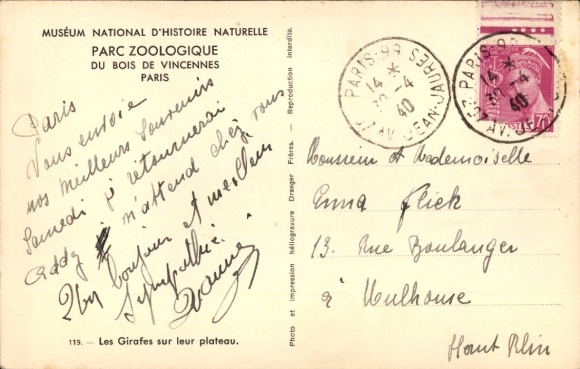 MUSÉUM NATIONAL D'HISTOIRE NATURELLE
PARC ZOOLOGIQUE
DU BOIS DE VINCENNES
PARIS
Paris
Vous envoie
nos meilleurs souvenirs
Samedi retournerai
Addy m'attend chez vous
bonjour et meilleur
Sympathie
119. - Les Girafes sur leur plateau.
Photo et impression héliogravure Draeger Frères. - Reproduction interdite.
PARIS-99
14 *
30-4
40
127 AV. JEAN-JAURÈS
PARIS-99
14 *
30-4
40
127 AV. JE
70
Monsieur et Mademoiselle
Emma Flick
13. Rue Boulanger
à Mulhouse
Haut Rhin